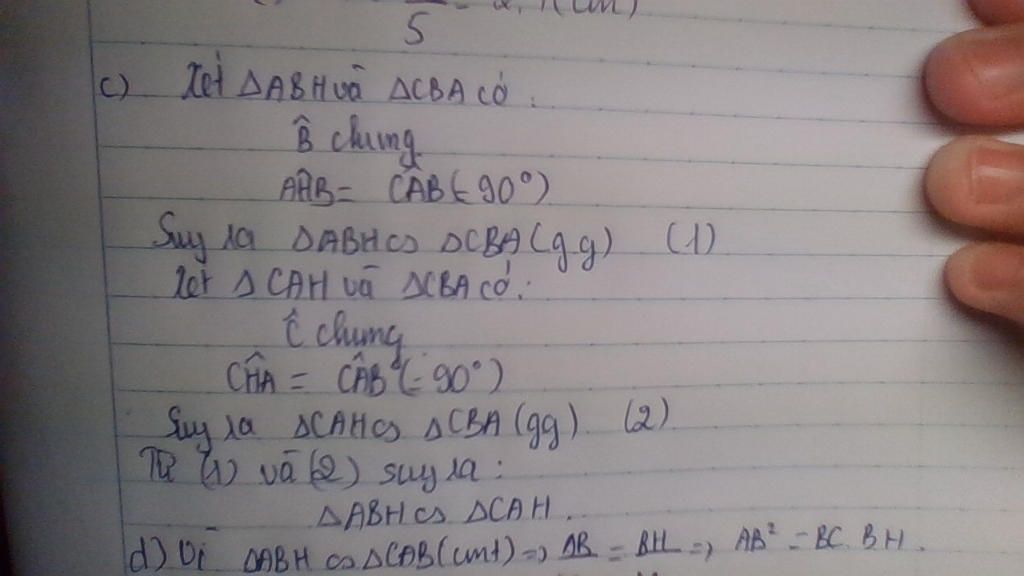 5 = 2,4(cm)
c) Xét ΔABH và ΔCBA có:
B̂ chung
AĤB = CÂB (= 90°)
Suy ra ΔABH ∽ ΔCBA (g.g) (1)
Xét ΔCAH và ΔCBA có:
Ĉ chung
CĤA = CÂB (= 90°)
Suy ra ΔCAH ∽ ΔCBA (gg). (2)
Từ (1) và (2) suy ra:
ΔABH ∽ ΔCAH.
d) Vì ΔABH ∽ ΔCAB (cmt) => AB = BH => AB² = BC.BH.